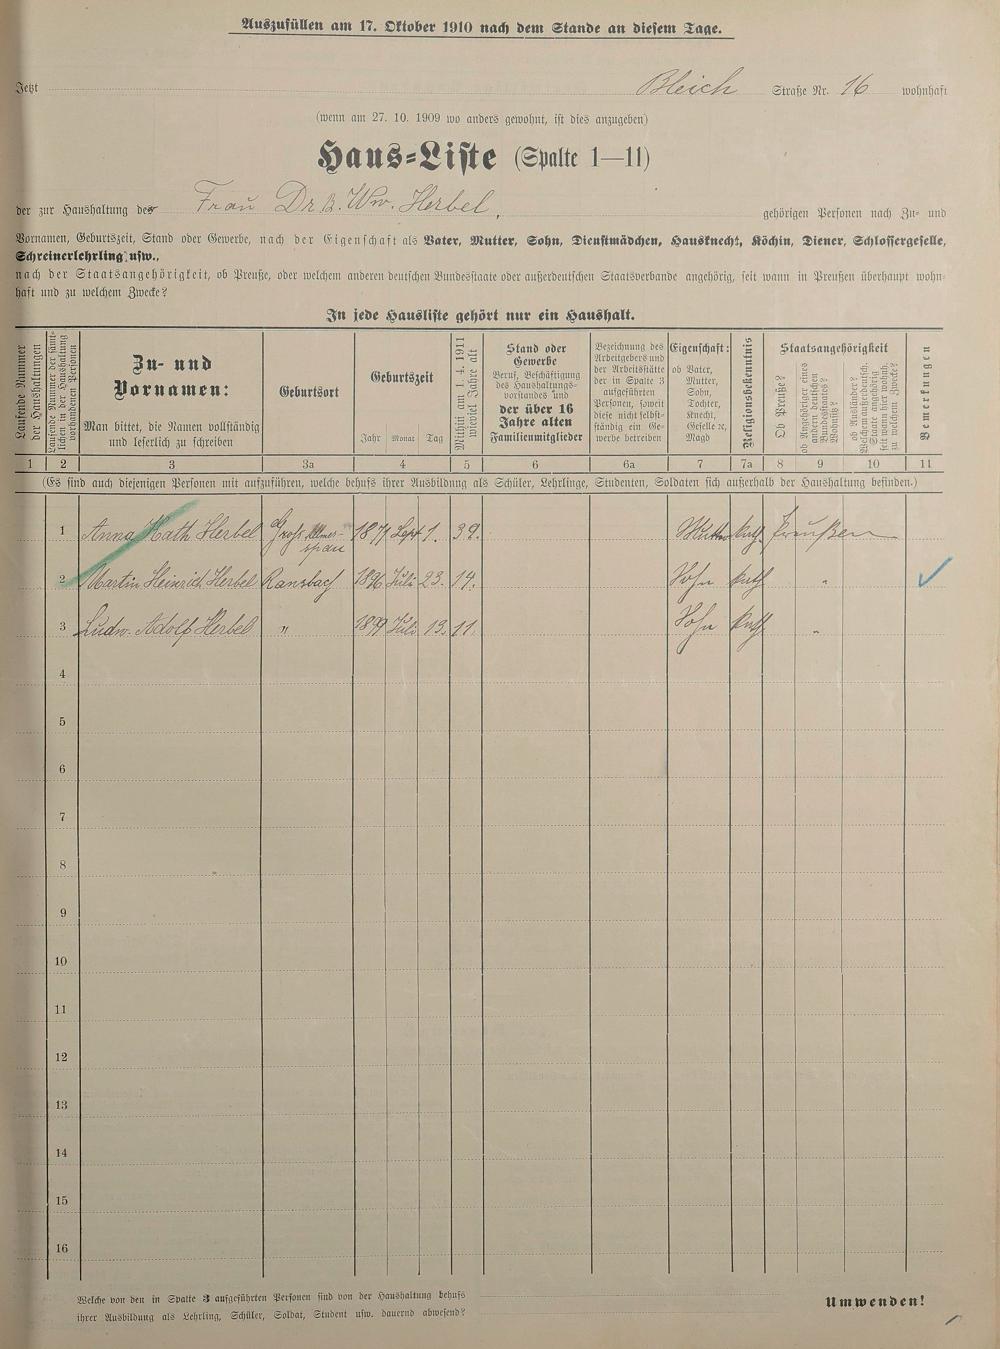 Auszufüllen am 17. Oktober 1910 nach dem Stande an diesem Tage.
Jetzt Bleich Straße Nr. 16 wohnhaft
(wenn am 27. 10. 1909 wo anders gewohnt, ist dies anzugeben)
Haus-Liste (Spalte 1—11)
der zur Haushaltung des Frau Dr. Ww. Herbel, gehörigen Personen nach Zu- und
Vornamen, Geburtszeit, Stand oder Gewerbe, nach der Eigenschaft als Vater, Mutter, Sohn, Dienstmädchen, Hausknecht, Köchin, Diener, Schlossergeselle,
Schreinerlehrling usw.,
nach der Staatsangehörigkeit, ob Preuße, oder welchem anderen deutschen Bundesstaate oder außerdeutschen Staatsverbande angehörig, seit wann in Preußen überhaupt wohn-
haft und zu welchem Zwecke?
In jede Hausliste gehört nur ein Haushalt.
Laufende Nummer
der Haushaltungen
Laufende Nummer der sämt-
lichen in der Haushaltung
vorhandenen Personen
Zu- und
Vornamen:
Man bittet, die Namen vollständig
und leserlich zu schreiben
Geburtsort
Geburtszeit
Jahr Monat Tag
Mithin am 1. 4. 1911
wieviel Jahre alt
Stand oder
Gewerbe
Beruf, Beschäftigung
des Haushaltungs-
vorstandes und
der über 16
Jahre alten
Familienmitglieder
Bezeichnung des
Arbeitgebers und
der Arbeitsstätte
der in Spalte 3
aufgeführten
Personen, soweit
diese nicht selbst-
ständig ein Ge-
werbe betreiben
Eigenschaft:
ob Vater,
Mutter,
Sohn,
Tochter,
Knecht,
Geselle ꝛc,
Magd
Religionsbekenntnis
Staatsangehörigkeit
Ob Preuße?
ob Angehöriger eines
andern deutschen
Bundesstaates?
Wohnsitz?
ob Ausländer?
Welchem außerdeutsch.
Staate angehörig
seit wann hier wohnh.
zu welchem Zwecke?
Bemerkungen
1 2 3 3a 4 5 6 6a 7 7a 8 9 10 11
(Es sind auch diejenigen Personen mit aufzuführen, welche behufs ihrer Ausbildung als Schüler, Lehrlinge, Studenten, Soldaten sich außerhalb der Haushaltung befinden.)
1 Anna Kath Herbel Groß 1871 Sept 1. 39. Mutter kath. Preußen
2 Martin Heinrich Herbel Ransbach 1896 Juli 23. 14. Sohn kath "
3 Ludw. Adolf Herbel " 1899 Juli 13. 11. Sohn kath. "
4
5
6
7
8
9
10
11
12
13
14
15
16
Welche von den in Spalte 3 aufgeführten Personen sind von der Haushaltung behufs
ihrer Ausbildung als Lehrling, Schüler, Soldat, Student usw. dauernd abwesend?
Umwenden!